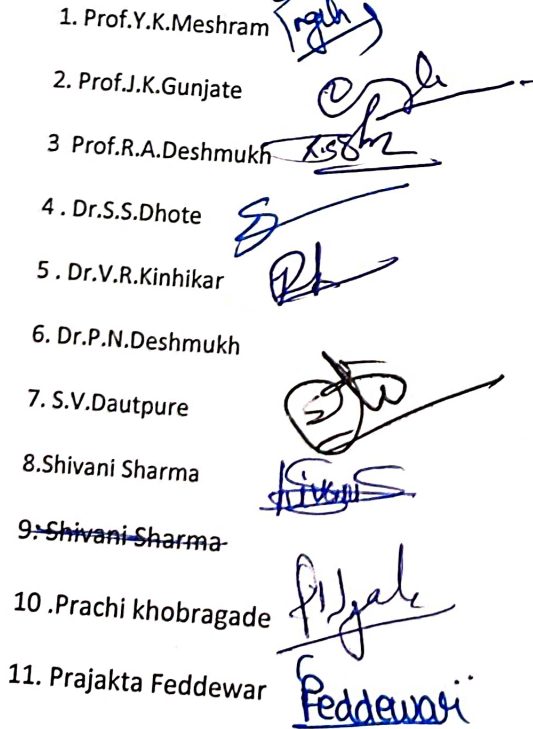 1. Prof.Y.K.Meshram
2. Prof.J.K.Gunjate
3 Prof.R.A.Deshmukh
4 . Dr.S.S.Dhote
5 . Dr.V.R.Kinhikar
6. Dr.P.N.Deshmukh
7. S.V.Dautpure
8.Shivani Sharma
9. Shivani Sharma
10 .Prachi khobragade
11. Prajakta Feddewar Feddewar